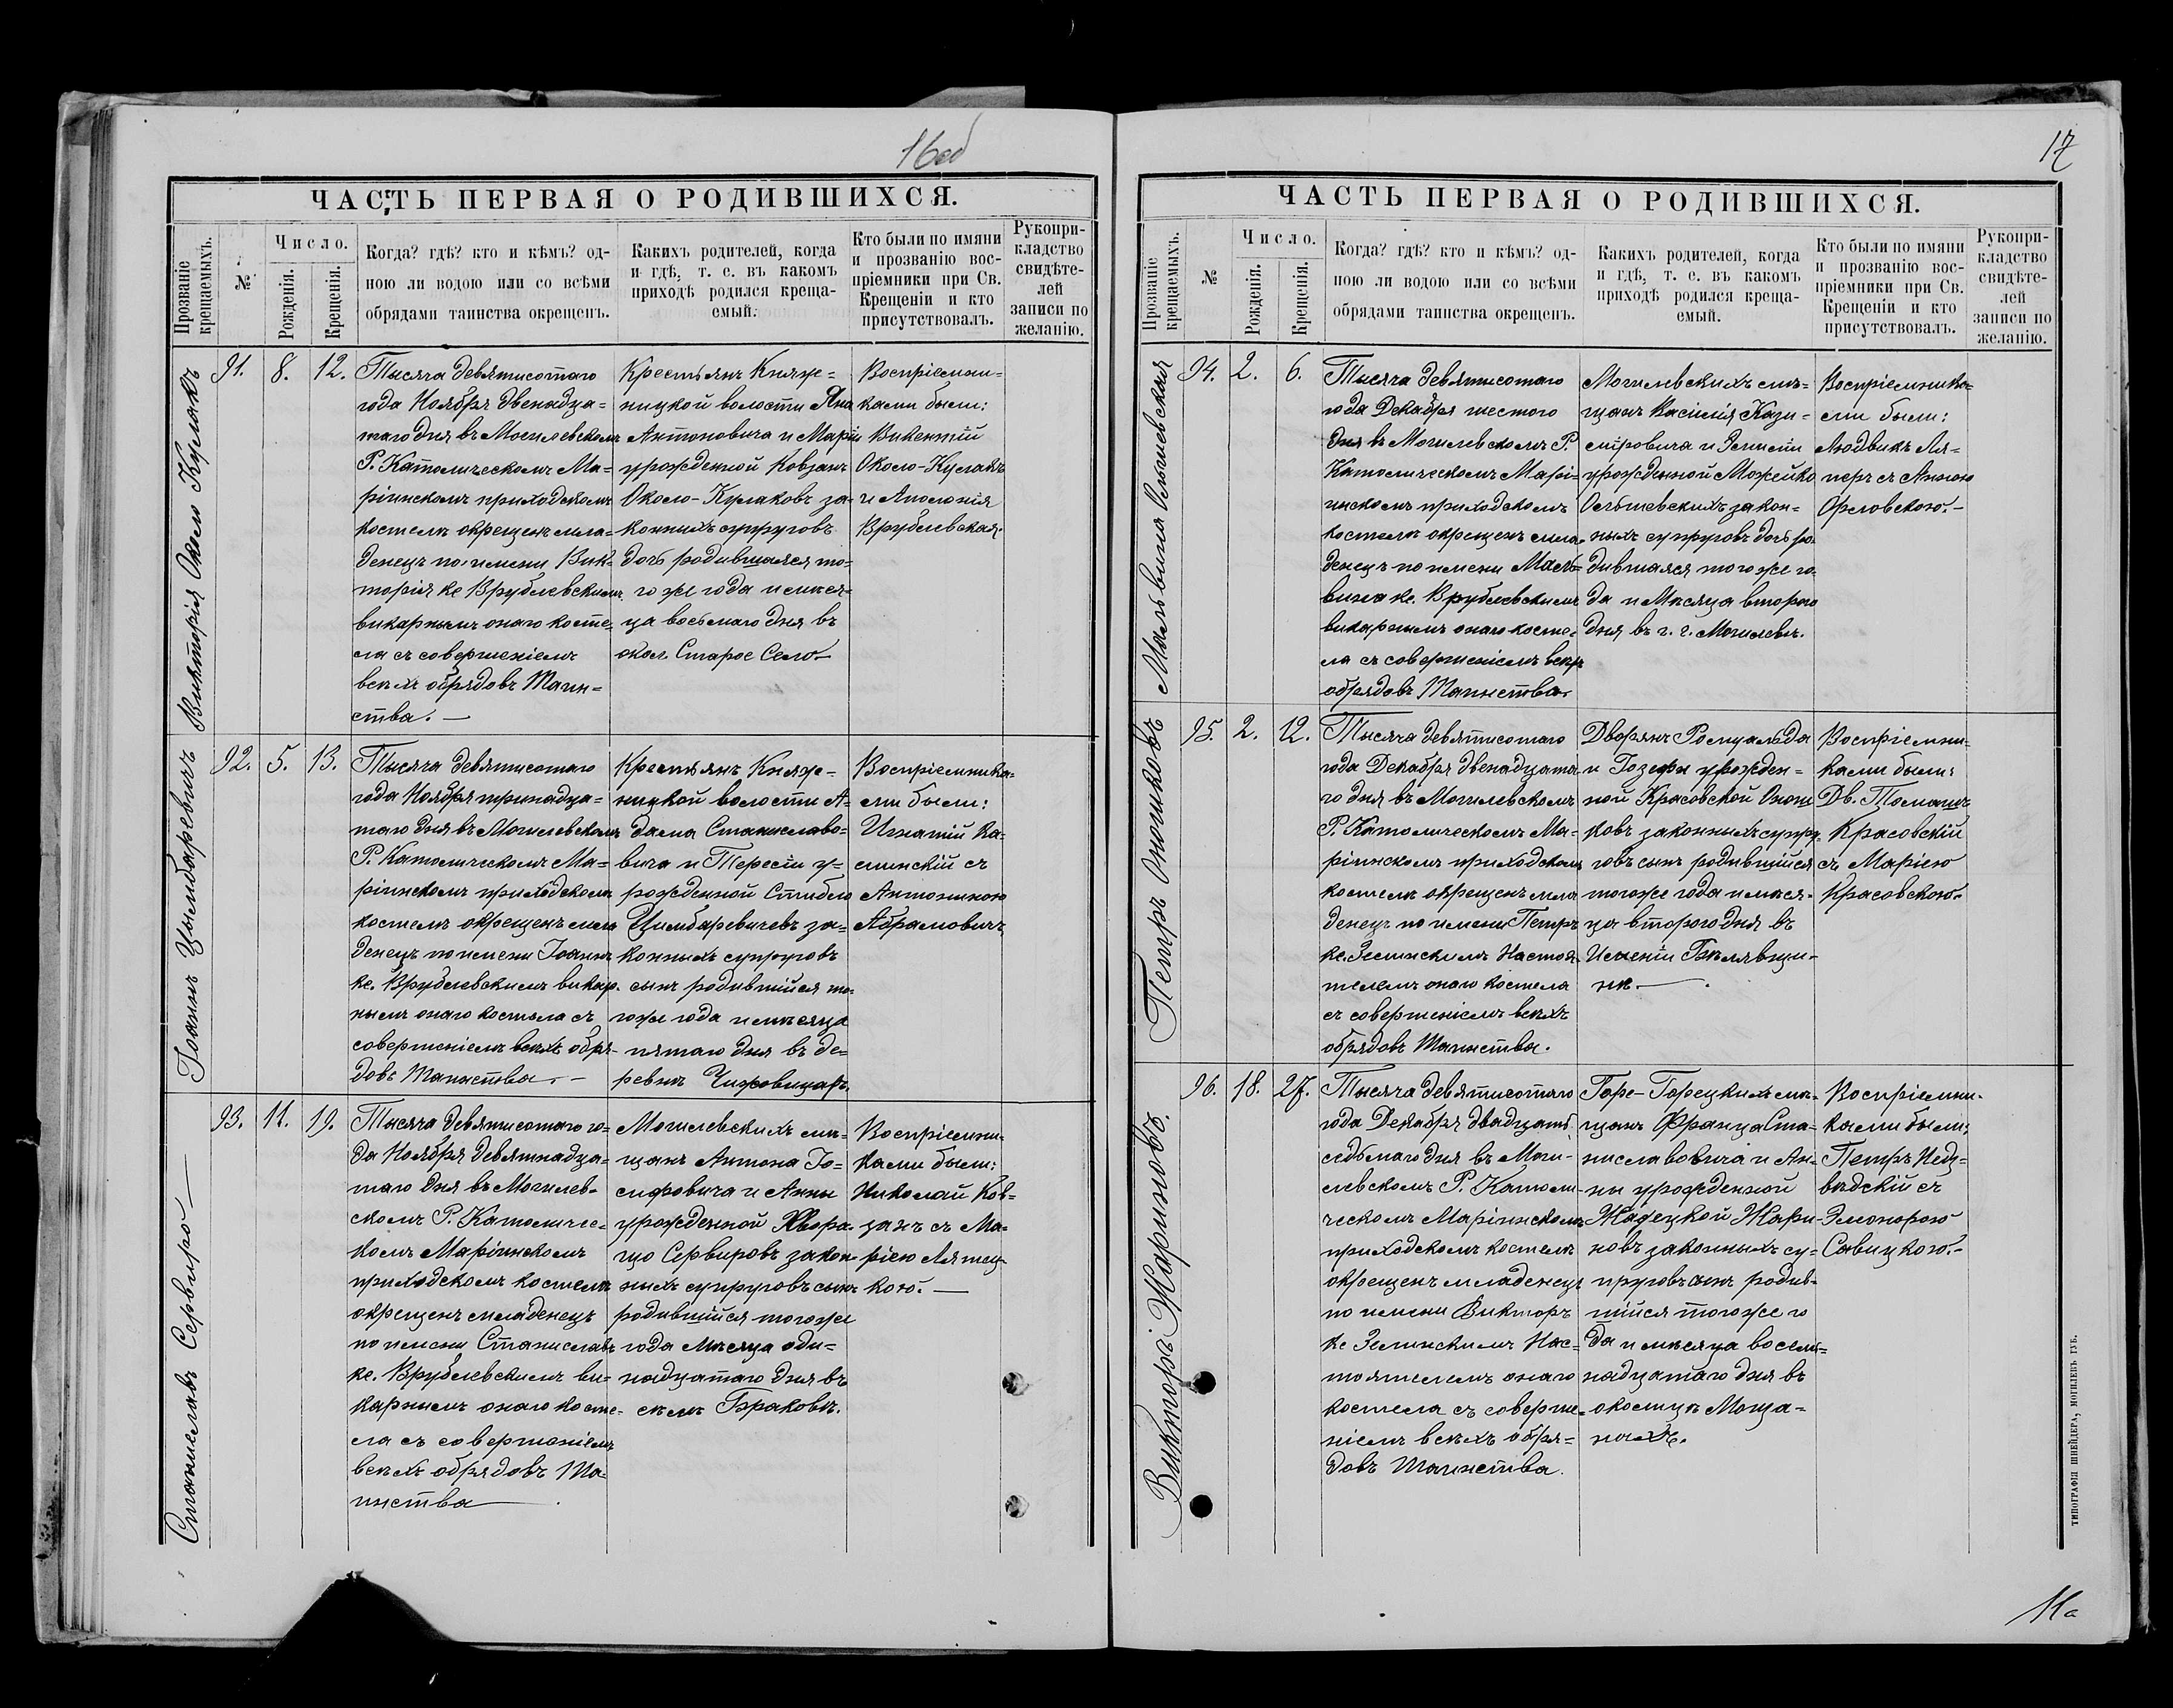 16об
ЧАСТЬ ПЕРВАЯ О РОДИВШИХСЯ.
Прозваніе крещаемыхъ.
№
Число.
Рожденія.
Крещенія.
Когда? гдѣ? кто и кѣмъ? од-
ною ли водою или со всѣми
обрядами таинства окрещенъ.
Какихъ родителей, когда
и гдѣ, т. е. въ какомъ
приходѣ родился креща-
емый.
Кто были по имяни
и прозванію вос-
пріемники при Св.
Крещеніи и кто
присутствовалъ.
Рукопри-
кладство
свидѣте-
лей
записи по
желанію.
Викторія Около Кулакъ
91.
8.
12.
Тысяча девятисотаго
года Ноября двенадца-
таго дня въ Могилевскомъ
Р. Католическомъ Ма-
ріинскомъ приходскомъ
костелѣ окрещенъ мла-
денецъ по имени Вик-
торія кс Врублевскимъ
викарнымъ онаго косте-
ла съ совершеніемъ
всѣхъ обрядовъ Таин-
ства. —
Крестьянъ Княже-
ницкой волости Яна
Антоновича и Маріи
урожденной Ковзанъ
Около-Кулаковъ за-
конныхъ супруговъ
дочь родившаяся то-
го же года и мѣся-
ца восьмаго дня въ
окол. Старое Село—
Воспріемни-
ками были:
Викентій
Около-Кулакъ
и Аполонія
Врублевская.
Іоаннъ Цымбаревичъ
92.
5.
13.
Тысяча девятисотаго
года Ноября тринадца-
таго дня въ Могилевскомъ
Р. Католическомъ Ма-
ріинскомъ приходскомъ
костелѣ окрещенъ мла
денецъ по имени Іоаннъ
кс. Врублевскимъ викар.
нымъ онаго костела съ
совершеніемъ всѣхъ обря-
довъ Таинства. —
Крестьянъ Княже-
ницкой волости А-
дама Станиславо-
вича и Тересіи у-
рожденной Стибло
Цимбаревичевъ за-
конныхъ супруговъ
сынъ родившійся то-
гоже года и мѣсяца
пятаго дня въ де-
ревнѣ Чижовицахъ.
Воспріемника-
ми были:
Игнатій Ка-
минскій съ
Антониною
Абрамовичъ
Станиславъ Сервиро —
93.
11.
19.
Тысяча девятисотаго го-
да Ноября девятнадца-
таго дня въ Могилев-
скомъ Р. Католичес-
комъ Маріинскомъ
приходскомъ костелѣ
окрещенъ младенецъ
по имени Станиславъ
кс. Врублевскимъ ви-
карнымъ онаго косте-
ла съ совершеніемъ
всѣхъ обрядовъ Та-
инства —
Могилевскихъ мѣ-
щанъ Антона Іо-
сифовича и Анны
урожденной
Сервировъ закон
ныхъ супруговъ сынъ
родившійся тогоже
года мѣсяца оди-
надцатаго дня въ
селѣ Браковѣ.
Воспріемни-
ками были:
Николай Ков-
занъ съ Ма-
ріею Лятец-
кою. —
17
ЧАСТЬ ПЕРВАЯ О РОДИВШИХСЯ.
Прозваніе крещаемыхъ.
№
Число.
Рожденія.
Крещенія.
Когда? гдѣ? кто и кѣмъ? од-
ною ли водою или со всѣми
обрядами таинства окрещенъ.
Какихъ родителей, когда
и гдѣ, т. е. въ какомъ
приходѣ родился креща-
емый.
Кто были по имяни
и прозванію вос-
пріемники при Св.
Крещеніи и кто
присутствовалъ.
Рукопри-
кладство
свидѣте-
лей
записи по
желанію.
Мальвина
94.
2.
6.
Тысяча девятисотаго
года Декабря шестого
дня въ Могилевскомъ Р.
Католическомъ Марі-
инскомъ приходскомъ
костелѣ окрещенъ мла-
денецъ по имени Маль-
вина кс. Врублевскимъ
викарнымъ онаго косте-
ла съ совершеніемъ всѣхъ
обрядовъ Таинства.
Могилевскихъ мѣ-
щанъ Василія Кази-
міровича и Эмиліи
урожденной Можейко
закон-
ныхъ супруговъ дочь ро-
дившаяся тогоже го-
да и Мѣсяца второго
дня въ г. г. Могилевѣ.
Воспріемника-
ми были:
Людвикъ Ля-
перъ съ Анною
Орловскою. —
Петръ Оношковъ
95.
2.
12.
Тысяча девятисотаго
года Декабря двенадцата
го дня въ Могилевскомъ
Р. Католическомъ Ма-
ріинскомъ приходскомъ
костелѣ окрещенъ мла
денецъ по имени Петръ
кс. Зелинскимъ Настоя-
телемъ онаго костела
съ совершеніемъ всѣхъ
обрядовъ Таинства.
Дворянъ Ромуальда
и Іозефы урожден-
ной Красовской Онош
ковъ законныхъ супру-
говъ сынъ родившійся
тогоже года и мѣся-
ца второго дня въ
Имѣніи Бѣлявщи-
нѣ. —
Воспріемни-
ками были:
Дв. Томашъ
Красовскій
съ Маріею
Красовскою.
Викторъ Жариновъ.
96.
18.
27.
Тысяча девятисотаго
года Декабря двадцать
седьмаго дня въ Моги-
левскомъ Р. Католи-
ческомъ Маріинскомъ
приходскомъ костелѣ
окрещенъ младенецъ
по имени Викторъ
кс Зелинскимъ Нас-
тоятелемъ онаго
костела съ соверше-
ніемъ всѣхъ обря-
довъ Таинства.
Горе-Горецкихъ мѣ-
щанъ Франца Ста-
ниславовича и Ан-
ны урожденной
Жадецкой Жари-
новъ законныхъ су-
пруговъ сынъ родив-
шійся тогоже го
да и мѣсяца восем-
надцатаго дня въ
околицѣ Моща-
нахъ.
Воспріемни-
ками были:
Петръ Недз-
вѣдскій съ
Элеонорою
Савицкою. —
ТИПОГРАФІЯ ШНЕЙДЕРА, МОГИЛЕВЪ ГУБ.